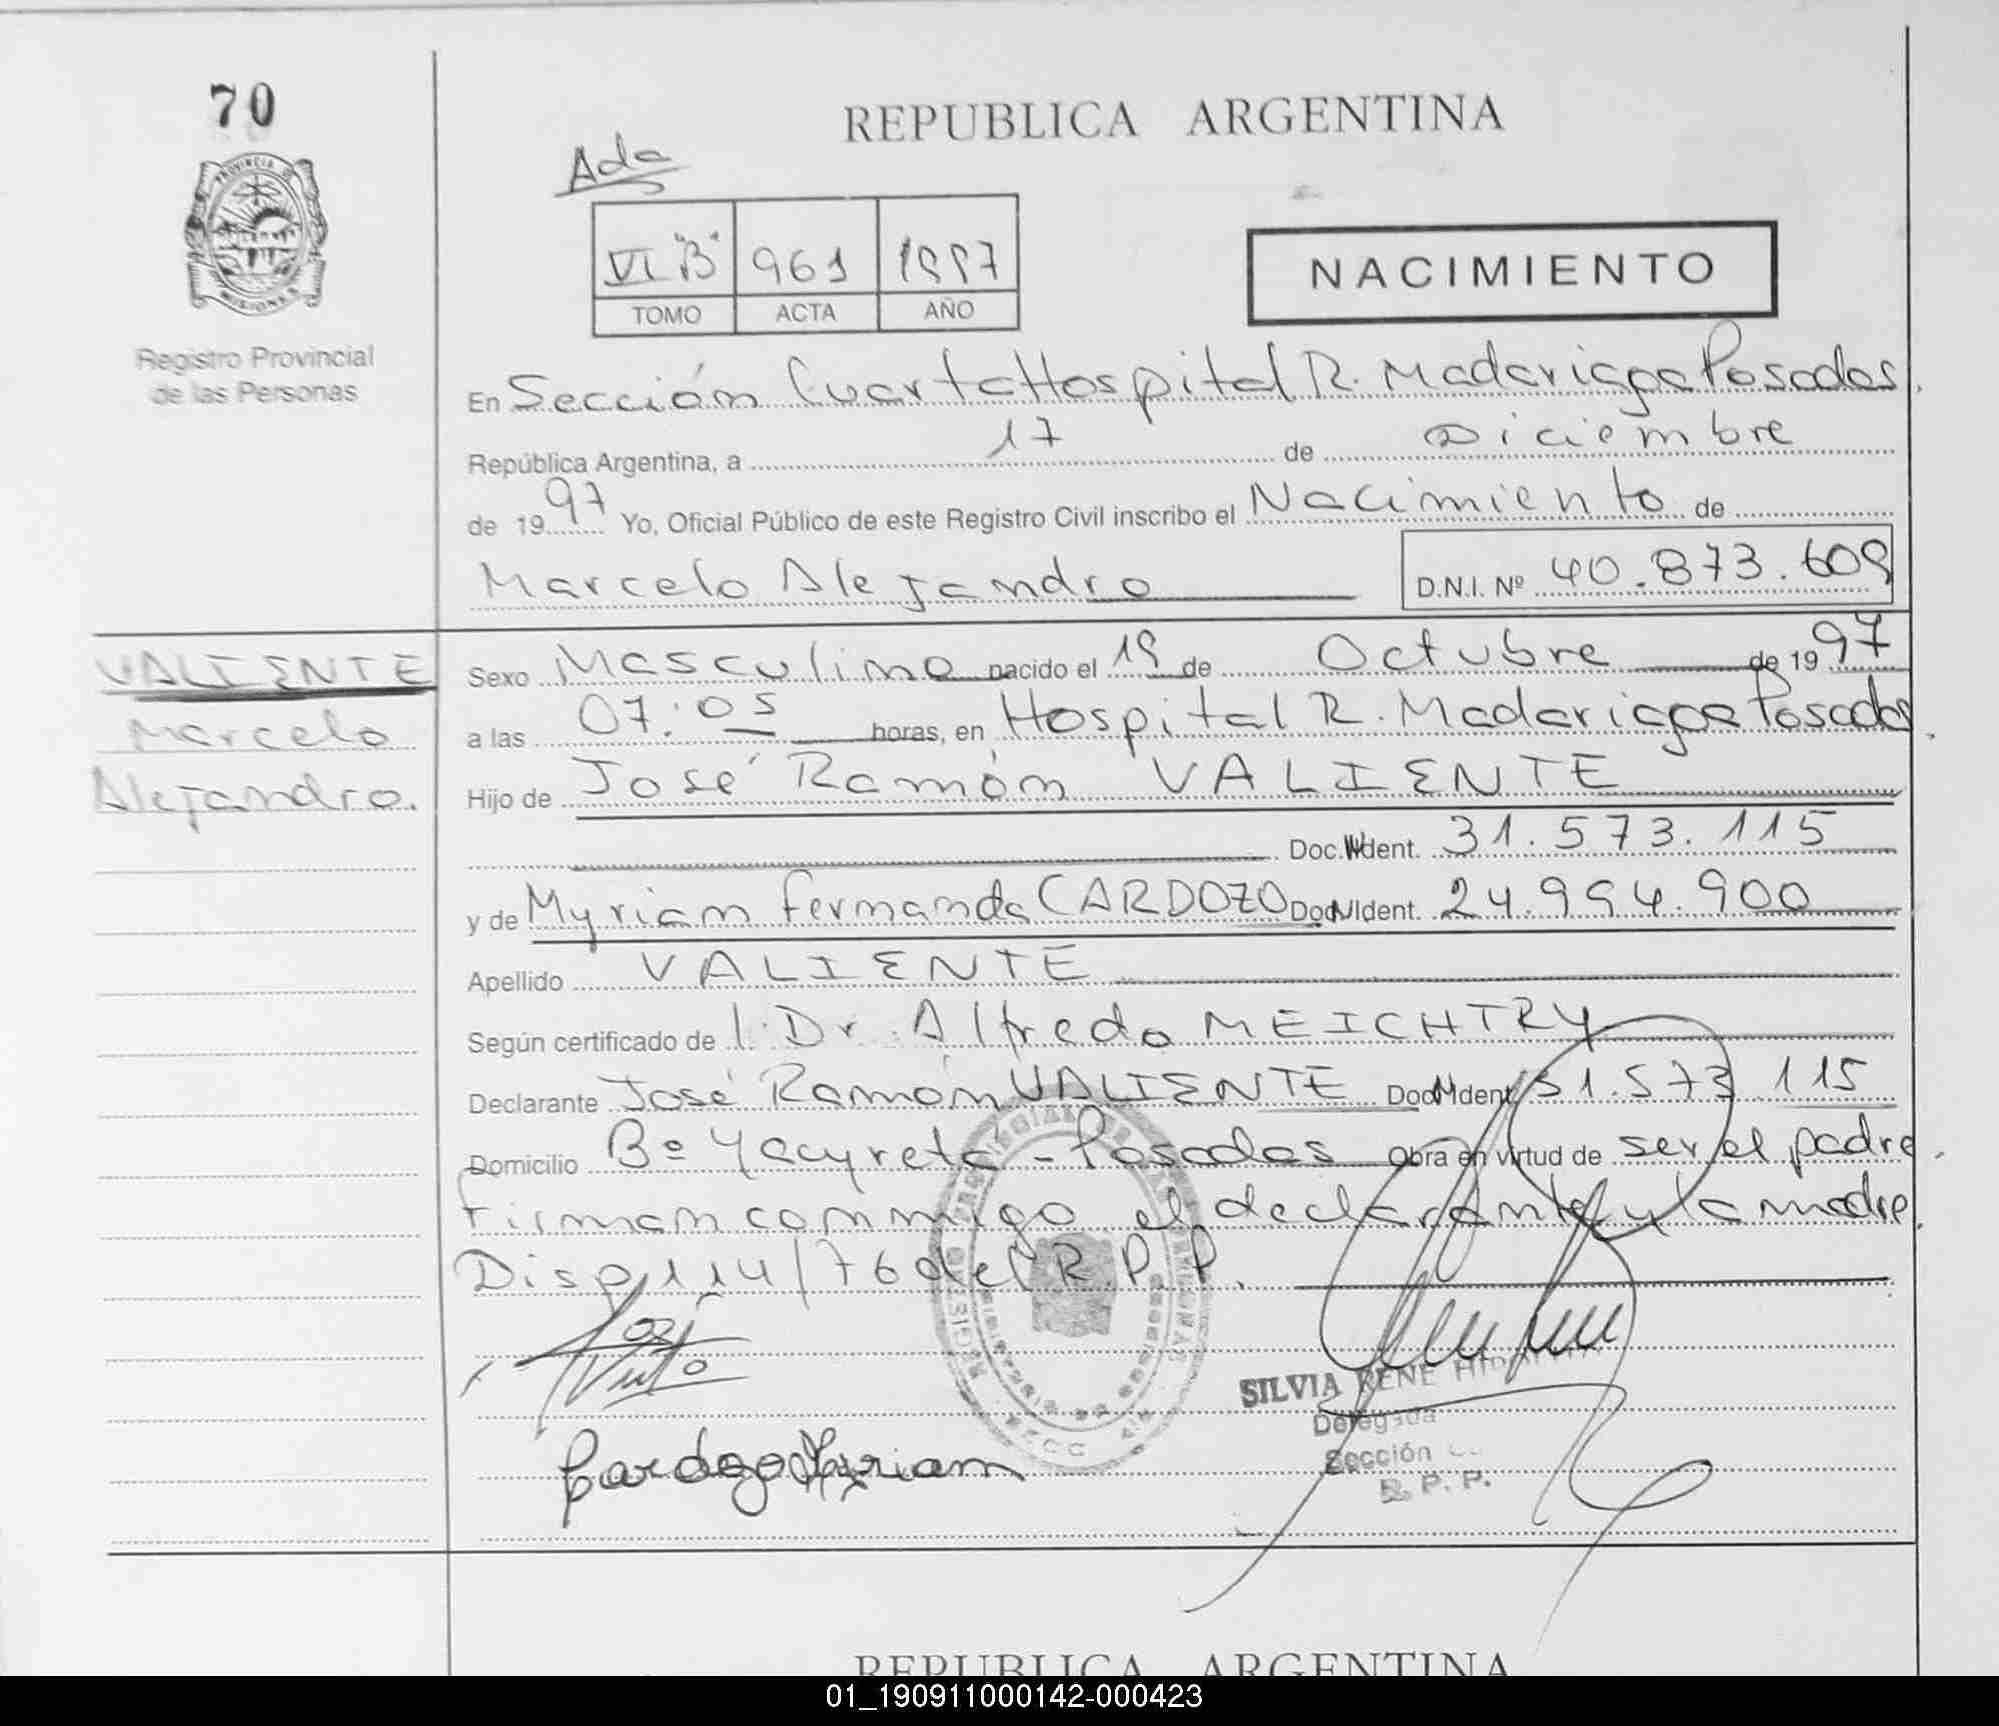 70
REPUBLICA ARGENTINA
Ada
PROVINCIA D
MISIONES
VI "B" 961 1997
TOMO ACTA AÑO
NACIMIENTO
Registro Provincial
de las Personas
En Sección Cuarta Hospital R. Madariaga Posadas.
República Argentina, a 17 de Diciembre
de 1997 Yo, Oficial Público de este Registro Civil inscribo el Nacimiento de
Marcelo Alejandro D.N.I. Nº 40.873.609
VALIENTE
Marcelo
Alejandro.
Sexo Masculino nacido el 19 de Octubre de 1997
a las 07:05 horas, en Hospital R. Madariaga Posadas.
Hijo de José Ramón VALIENTE
Doc. Ident. 31.573.115
y de Myriam Fernanda CARDOZO Doc. Ident. 24.994.900
Apellido VALIENTE
Según certificado de l. Dr. Alfredo MEICHTRY
Declarante José Ramón VALIENTE Doc. Ident. 31.573.115
Domicilio Bº Yacyretá - Posadas Obra en virtud de ser el padre.
Firman conmigo el declarante y la madre.
Disp 114/76 del R.P.P.
José
SILVIA RENE
Delegada
Sección
R. P. P.
Cardozo Myriam
REPUBLICA ARGENTINA
01_190911000142-000423